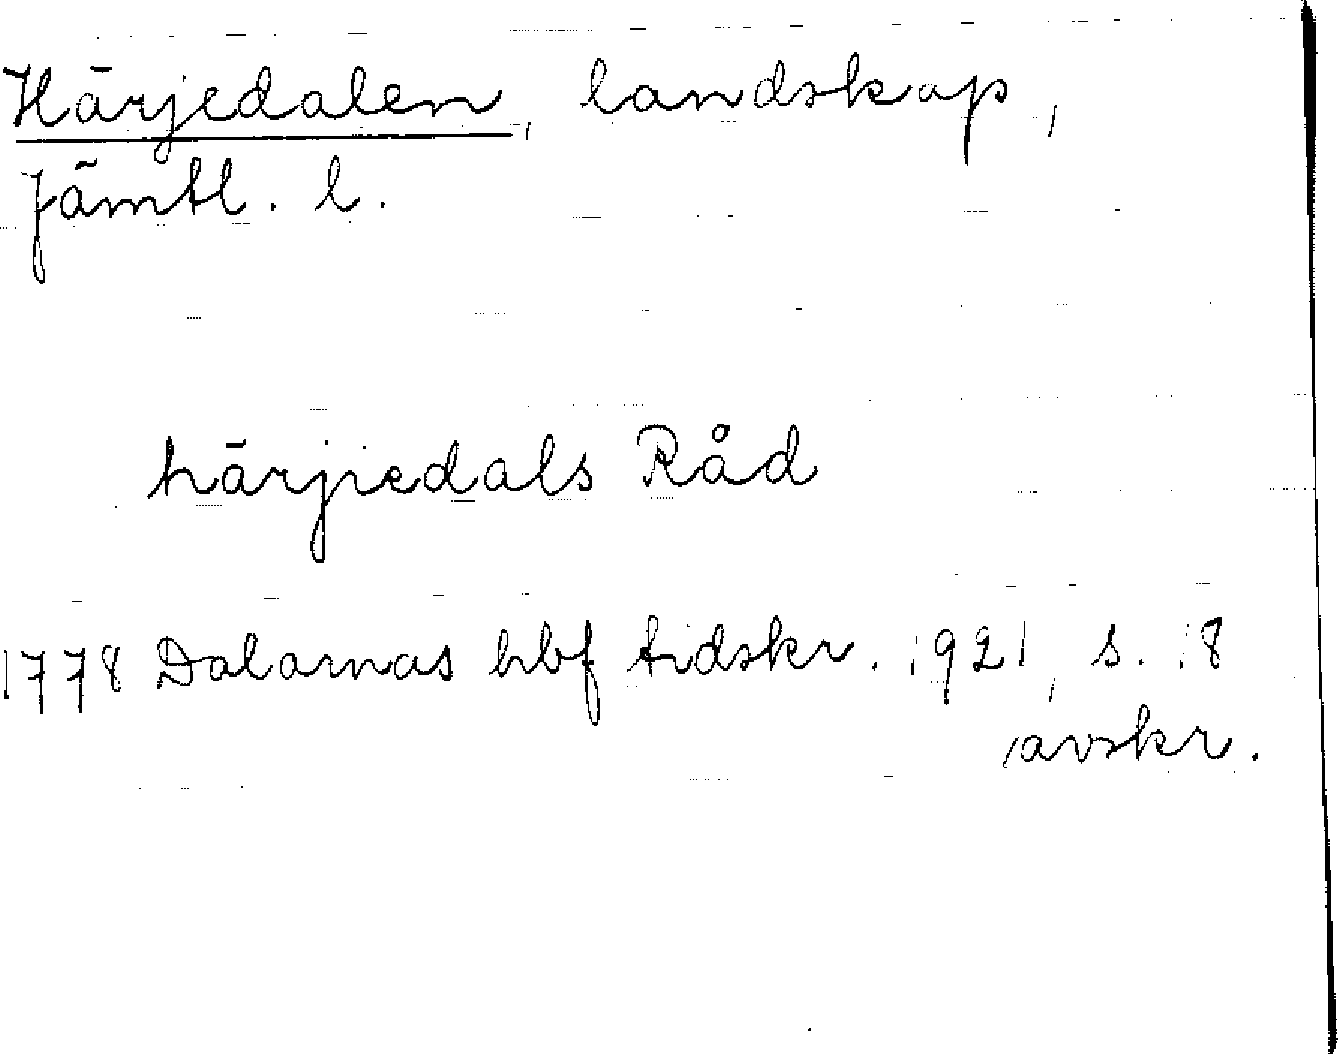 Härjedalen, landskap,
Jämtl. l.
härjiedals Råd
1778 Dalarnas hbf tidskr. 1921, s. 18
avskr.